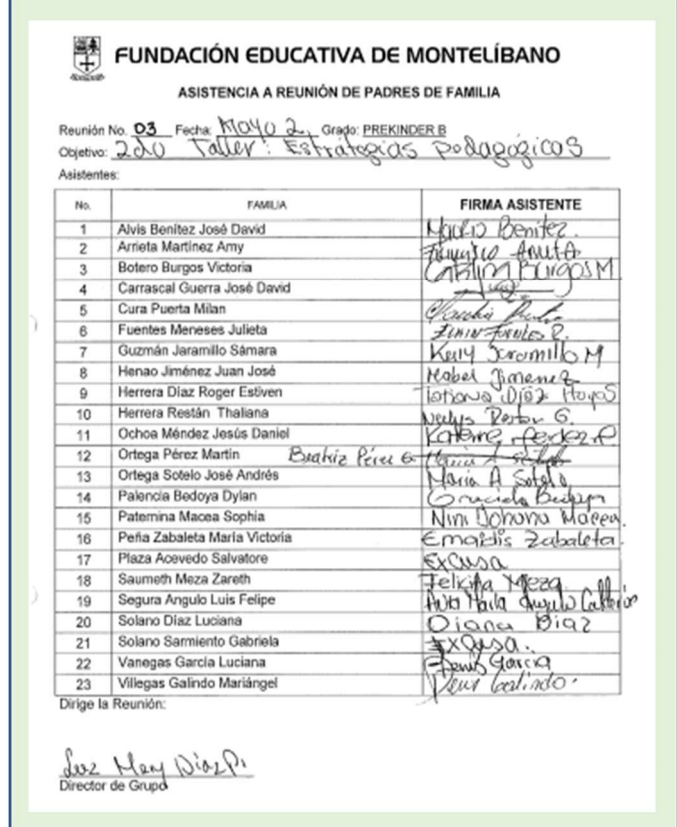 FUNDACIÓN EDUCATIVA DE MONTELÍBANO
ASISTENCIA A REUNIÓN DE PADRES DE FAMILIA
Reunión No. 03 Fecha: Mayo 2, Grado: PREKINDER B
Objetivo: 2do Taller: Estrategias pedagógicas
Asistentes:
No. FAMILIA FIRMA ASISTENTE
1 Alvis Benítez José David Benitez.
2 Arrieta Martínez Amy Francisco
3 Botero Burgos Victoria Burgos M
4 Carrascal Guerra José David
5 Cura Puerta Milan Claudia
6 Fuentes Meneses Julieta Fuentes R.
7 Guzmán Jaramillo Sámara Kelly Jaramillo M
8 Henao Jiménez Juan José Mabel Jimenez
9 Herrera Díaz Roger Estiven Tatiana Díaz Hoyos
10 Herrera Restán Thaliana G.
11 Ochoa Méndez Jesús Daniel
12 Ortega Pérez Martín Beatriz Pérez G.
13 Ortega Sotelo José Andrés Maria A Sotelo
14 Palencia Bedoya Dylan Graciela Bedoya
15 Paternina Macea Sophia Nini Johana Macea.
16 Peña Zabaleta María Victoria Emaidis Zabaleta.
17 Plaza Acevedo Salvatore Excusa
18 Saumeth Meza Zareth Felicita Meza
19 Segura Angulo Luis Felipe Angulo
20 Solano Díaz Luciana Diana Diaz
21 Solano Sarmiento Gabriela Excusa.
22 Vanegas García Luciana Denis Garcia
23 Villegas Galindo Mariángel Galindo.
Dirige la Reunión:
Luz Mary Díaz P.
Director de Grupo